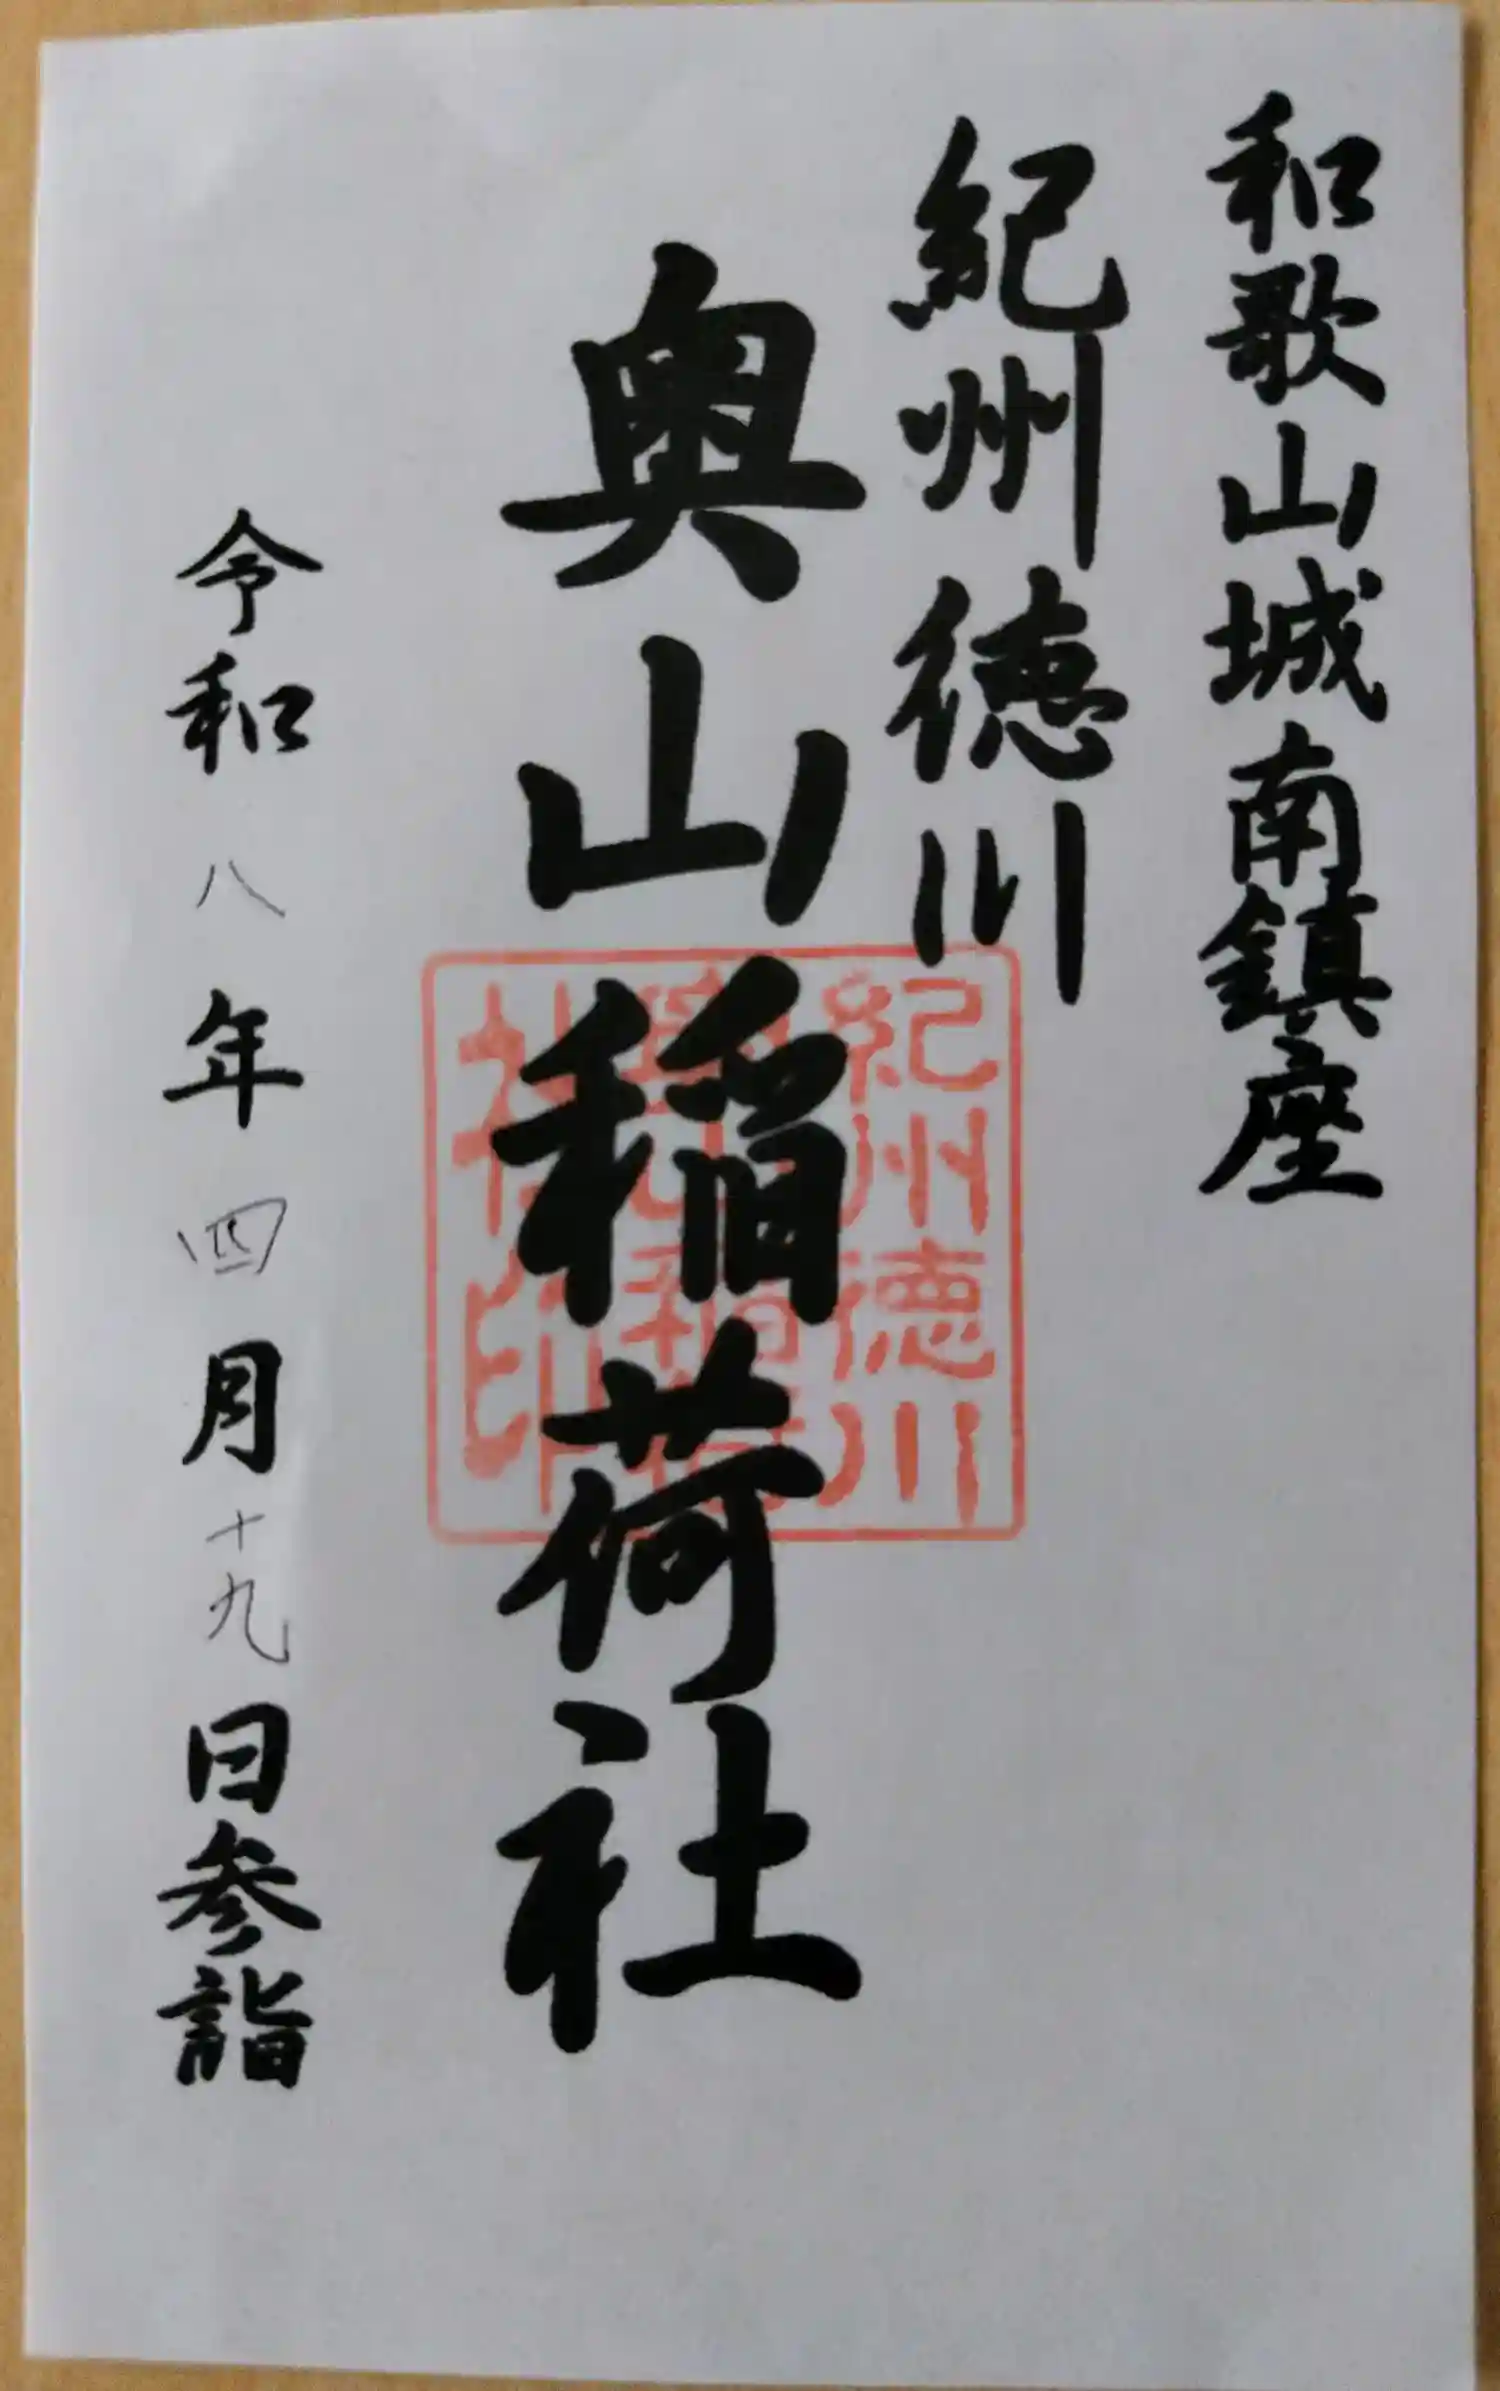 和歌山城南鎮座
紀州徳川
奥山稲荷社
紀州徳川
奥山稲荷
社印
令和八年四月十九日参詣